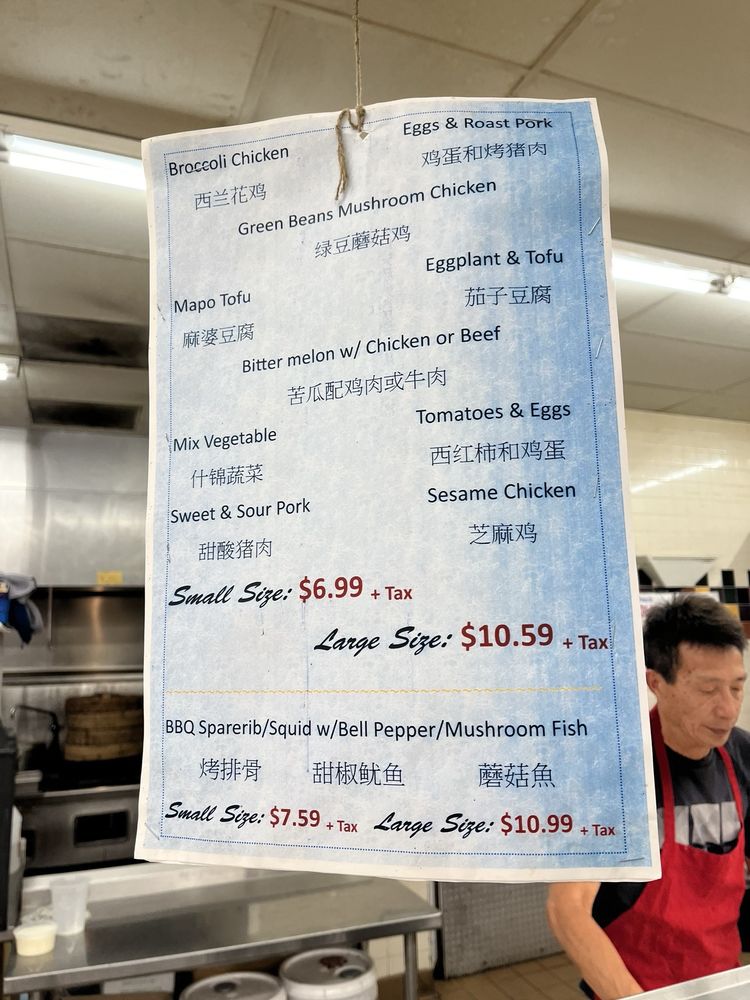 Eggs & Roast Pork
鸡蛋和烤猪肉
Broccoli Chicken
西兰花鸡
Green Beans Mushroom Chicken
绿豆蘑菇鸡
Eggplant & Tofu
茄子豆腐
Mapo Tofu
麻婆豆腐
Bitter melon w/ Chicken or Beef
苦瓜配鸡肉或牛肉
Tomatoes & Eggs
西红柿和鸡蛋
Mix Vegetable
什锦蔬菜
Sesame Chicken
芝麻鸡
Sweet & Sour Pork
甜酸猪肉
Small Size: $6.99 + Tax
Large Size: $10.59 + Tax
BBQ Sparerib/Squid w/Bell Pepper/Mushroom Fish
烤排骨 甜椒鱿鱼 蘑菇魚
Small Size: $7.59 + Tax Large Size: $10.99 + Tax